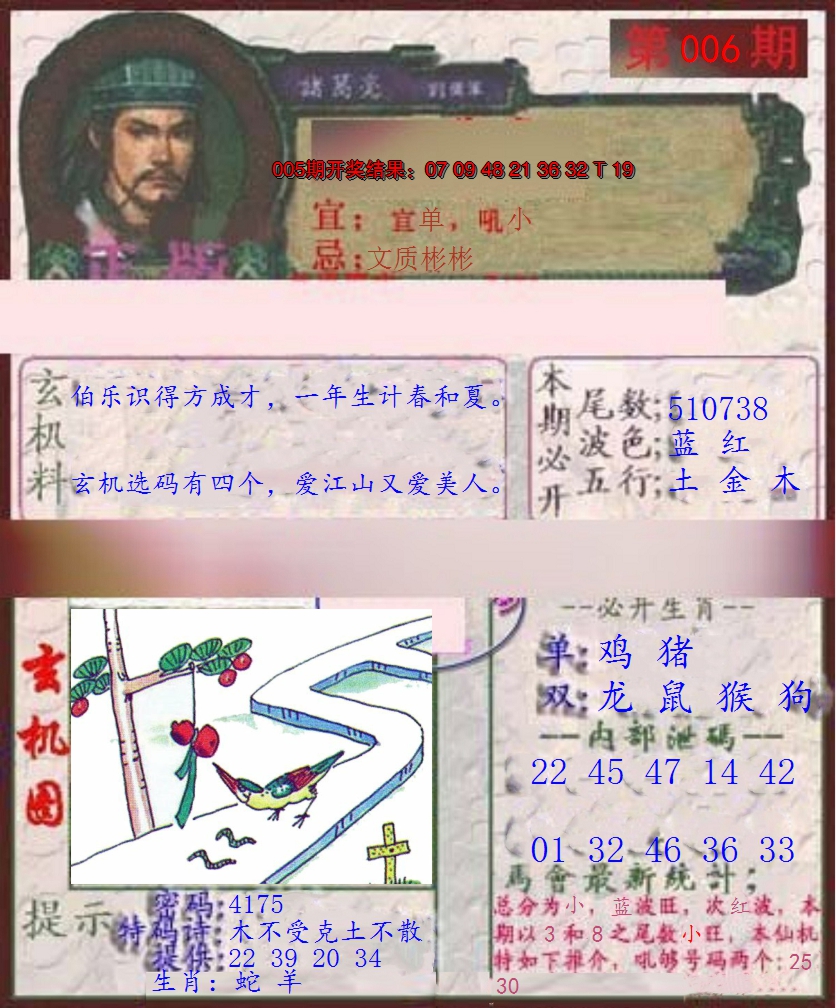 第 006 期
諸葛亮
005期开奖结果：07 09 48 21 36 32 T 19
宜：宜单，吼小
忌；文质彬彬
正版
玄机料
伯乐识得方成才，一年生计春和夏。
玄机选码有四个，爱江山又爱美人。
本期必开
尾数；510738
波色；蓝 红
五行；土 金 木
玄机图
--必开生肖--
单：鸡 猪
双：龙 鼠 猴 狗
一内部泄碼一
22 45 47 14 42
01 32 46 36 33
馬會最新統計；
总分为小，蓝波旺，次红波，本
期以3和8之尾数小旺，本仙机
特如下推介，吼够号码两个：25
30
提示
密码：4175
特码诗：木不受克土不散
提供：22 39 20 34
生肖：蛇 羊